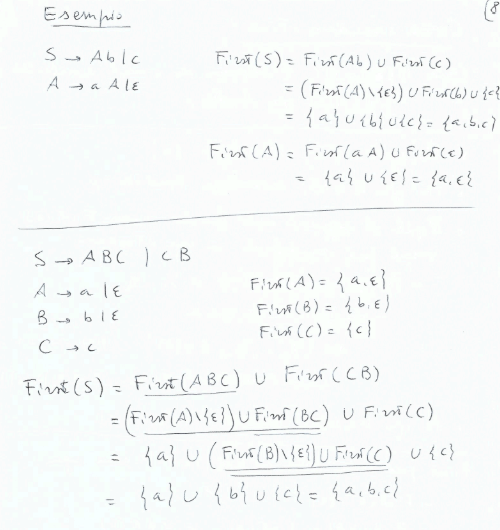 Esempio
(8
S → Ab|c
First(S) = First(Ab) ∪ First(c)
= (First(A)\{ε}) ∪ First(b) ∪ {c}
A → aA|ε
= {a} ∪ {b} ∪ {c} = {a,b,c}
First(A) = First(aA) ∪ First(ε)
= {a} ∪ {ε} = {a,ε}
S → ABC | CB
A → a|ε
First(A) = {a,ε}
B → b|ε
First(B) = {b,ε}
C → c
First(C) = {c}
First(S) = First(ABC) ∪ First(CB)
= (First(A)\{ε}) ∪ First(BC) ∪ First(C)
= {a} ∪ (First(B)\{ε}) ∪ First(C) ∪ {c}
= {a} ∪ {b} ∪ {c} = {a,b,c}